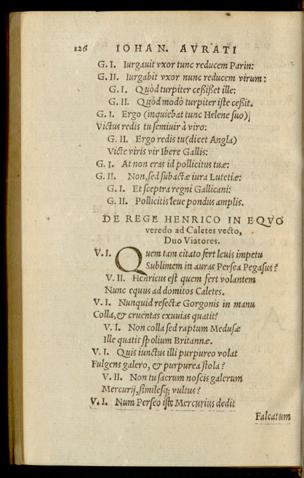 126 IOHAN. AVRATI
G. I. Iurgauit vxor tunc reducem Parin:
G. II. Iurgabit vxor nunc reducem virum:
G. I. Quòd turpiter ceßißet ille:
G. II. Quòd modò turpiter iste ceßit.
G. I. Ergo (inquiebat tunc Helene suo)
Victus redis tu semiuir à viro:
G. II. Ergo redis tu (dicet Angla)
Victe viris vir Ibere Gallis:
G. I. At non eras id pollicitus tuæ:
G. II. Non, sed subactæ iura Lutetiæ:
G. I. Et sceptra regni Gallicani:
G. II. Pollicitis leue pondus amplis.
DE REGE HENRICO IN EQVO
veredo ad Caletes vecto,
Duo Viatores.
V. I. Quem tam citato fert leuis impetu
Sublimem in auras Persea Pegasus?
V. II. Henricus est quem fert volantem
Nunc equus ad domitos Caletes.
V. I. Nunquid resectæ Gorgonis in manu
Colla, & cruentas exuuias quatit?
V. I. Non colla sed raptum Medusæ
Ille quatit spolium Britannæ.
V. I. Quis iunctus illi purpureo volat
Fulgens galero, & purpurea stola?
V. II. Non tu sacrum noscis galerum
Mercurij, similesq; vultus?
V. I. Num Perseo iste Mercurius dedit
Falcatum